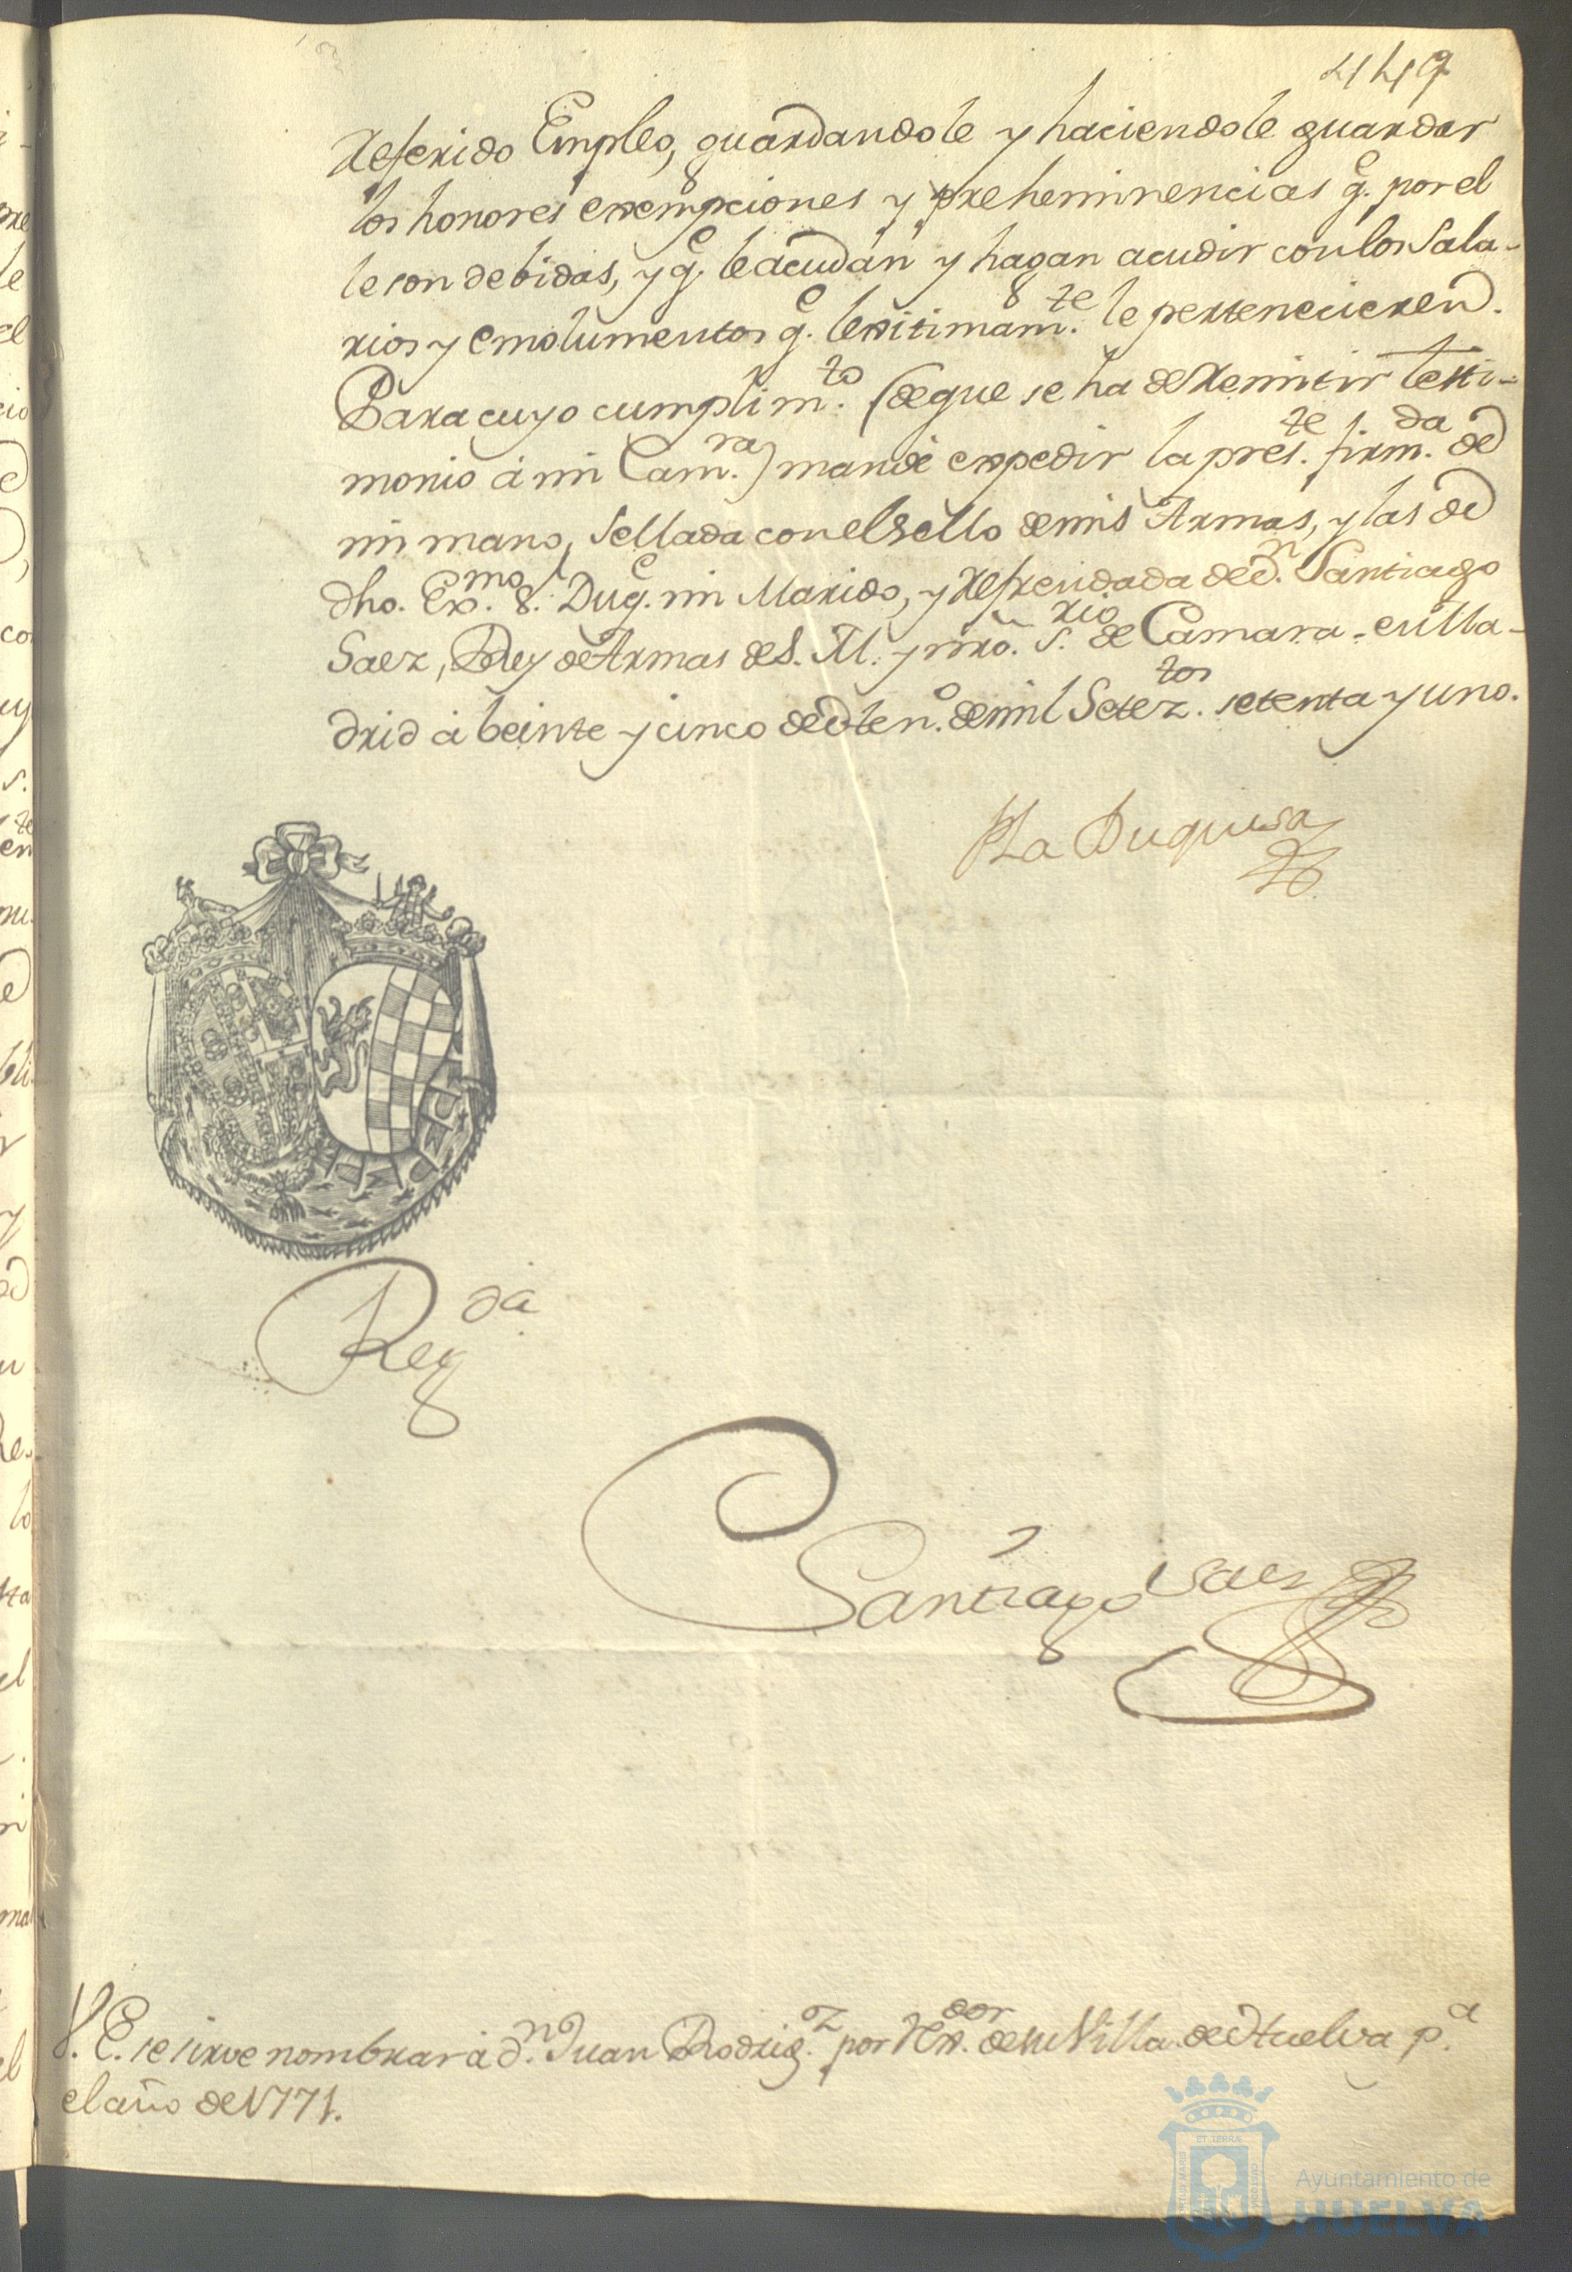 449
Referido Empleo, guardandole y haciendole guardar
los honores exempciones y preheminencias q.e por el
le son debidas, y q.e le acudan y hagan acudir con los Sala-
rios y emolumentos q.e lexitimam.te le pertenecieren.
Para cuyo cumplim.to (de que se ha de Remitir testi-
monio á mi Cam.ra) mandé expedir la pres.te firm.da de
mi mano, Sellada con el Sello de mis Armas, y las de
dho. Ex.mo S. Duq.e mi Marido, y Refrendada de D.n Santiago
Saez, Rey de Armas de S. M. y nrō. S.rio de Camara. en Ma-
drid á beinte y cinco de
de mil Setez.tos setenta y uno.
La Duquesa
Reg.da
Santiago Saez
V. E. se sirve nombrar á D.n Juan Rodrig.z por
de su Villa de Huelva p.a
el año de 1771.
ET TERRÆ
PORTUS MARIS
CUSTODIA
Ayuntamiento de
HUELVA